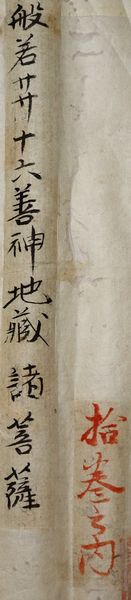 般若𦬇十六善神地藏 諸菩薩
拾巻之内